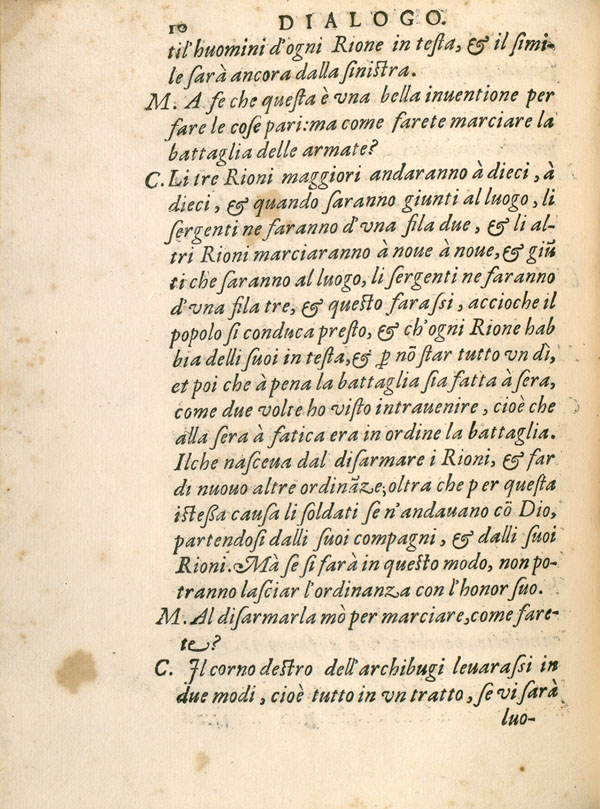 10 DIALOGO.
til'huomini d'ogni Rione in teſta, & il ſimi-
le ſarà ancora dalla ſiniſtra.
M. A fe che queſta è vna bella inuentione per
fare le coſe pari:ma come farete marciare la
battaglia delle armate?
C. Li tre Rioni maggiori andaranno à dieci, à
dieci, & quando ſaranno giunti al luogo, li
ſergenti ne faranno d'vna fila due, & li al-
tri Rioni marciaranno à noue à noue, & giũ
ti che ſaranno al luogo, li ſergenti ne faranno
d'vna fila tre, & queſto faraſſi, accioche il
popolo ſi conduca preſto, & ch'ogni Rione hab
bia delli ſuoi in teſta, & ꝑ nō ſtar tutto vn dì,
et poi che à pena la battaglia ſia fatta à ſera,
come due volte ho viſto intrauenire, cioè che
alla ſera à fatica era in ordine la battaglia.
Ilche naſceua dal diſarmare i Rioni, & far
di nuouo altre ordināze, oltra che per queſta
iſteßa cauſa li ſoldati ſe n'andauano cō Dio,
partendoſi dalli ſuoi compagni, & dalli ſuoi
Rioni. Mà ſe ſi farà in queſto modo, non po-
tranno laſciar l'ordinanza con l'honor ſuo.
M. Al diſarmarla mò per marciare, come fare-
te?
C. Il corno deſtro dell'archibugi leuaraſſi in
due modi, cioè tutto in vn tratto, ſe vi ſarà
luo-